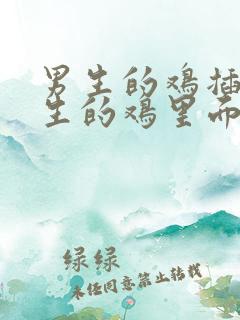 男生的鸡插
生的鸡里而
绿绿
未经同意禁止转载